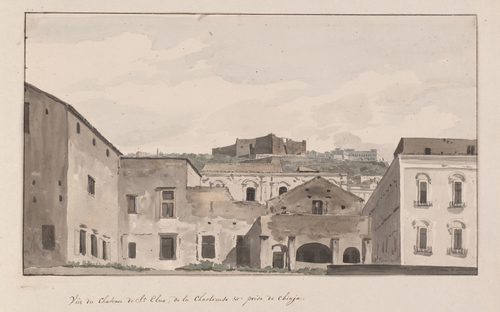 Vüe du Chateau de St Elme, de la Chartreuse &c prise de Chiaja.